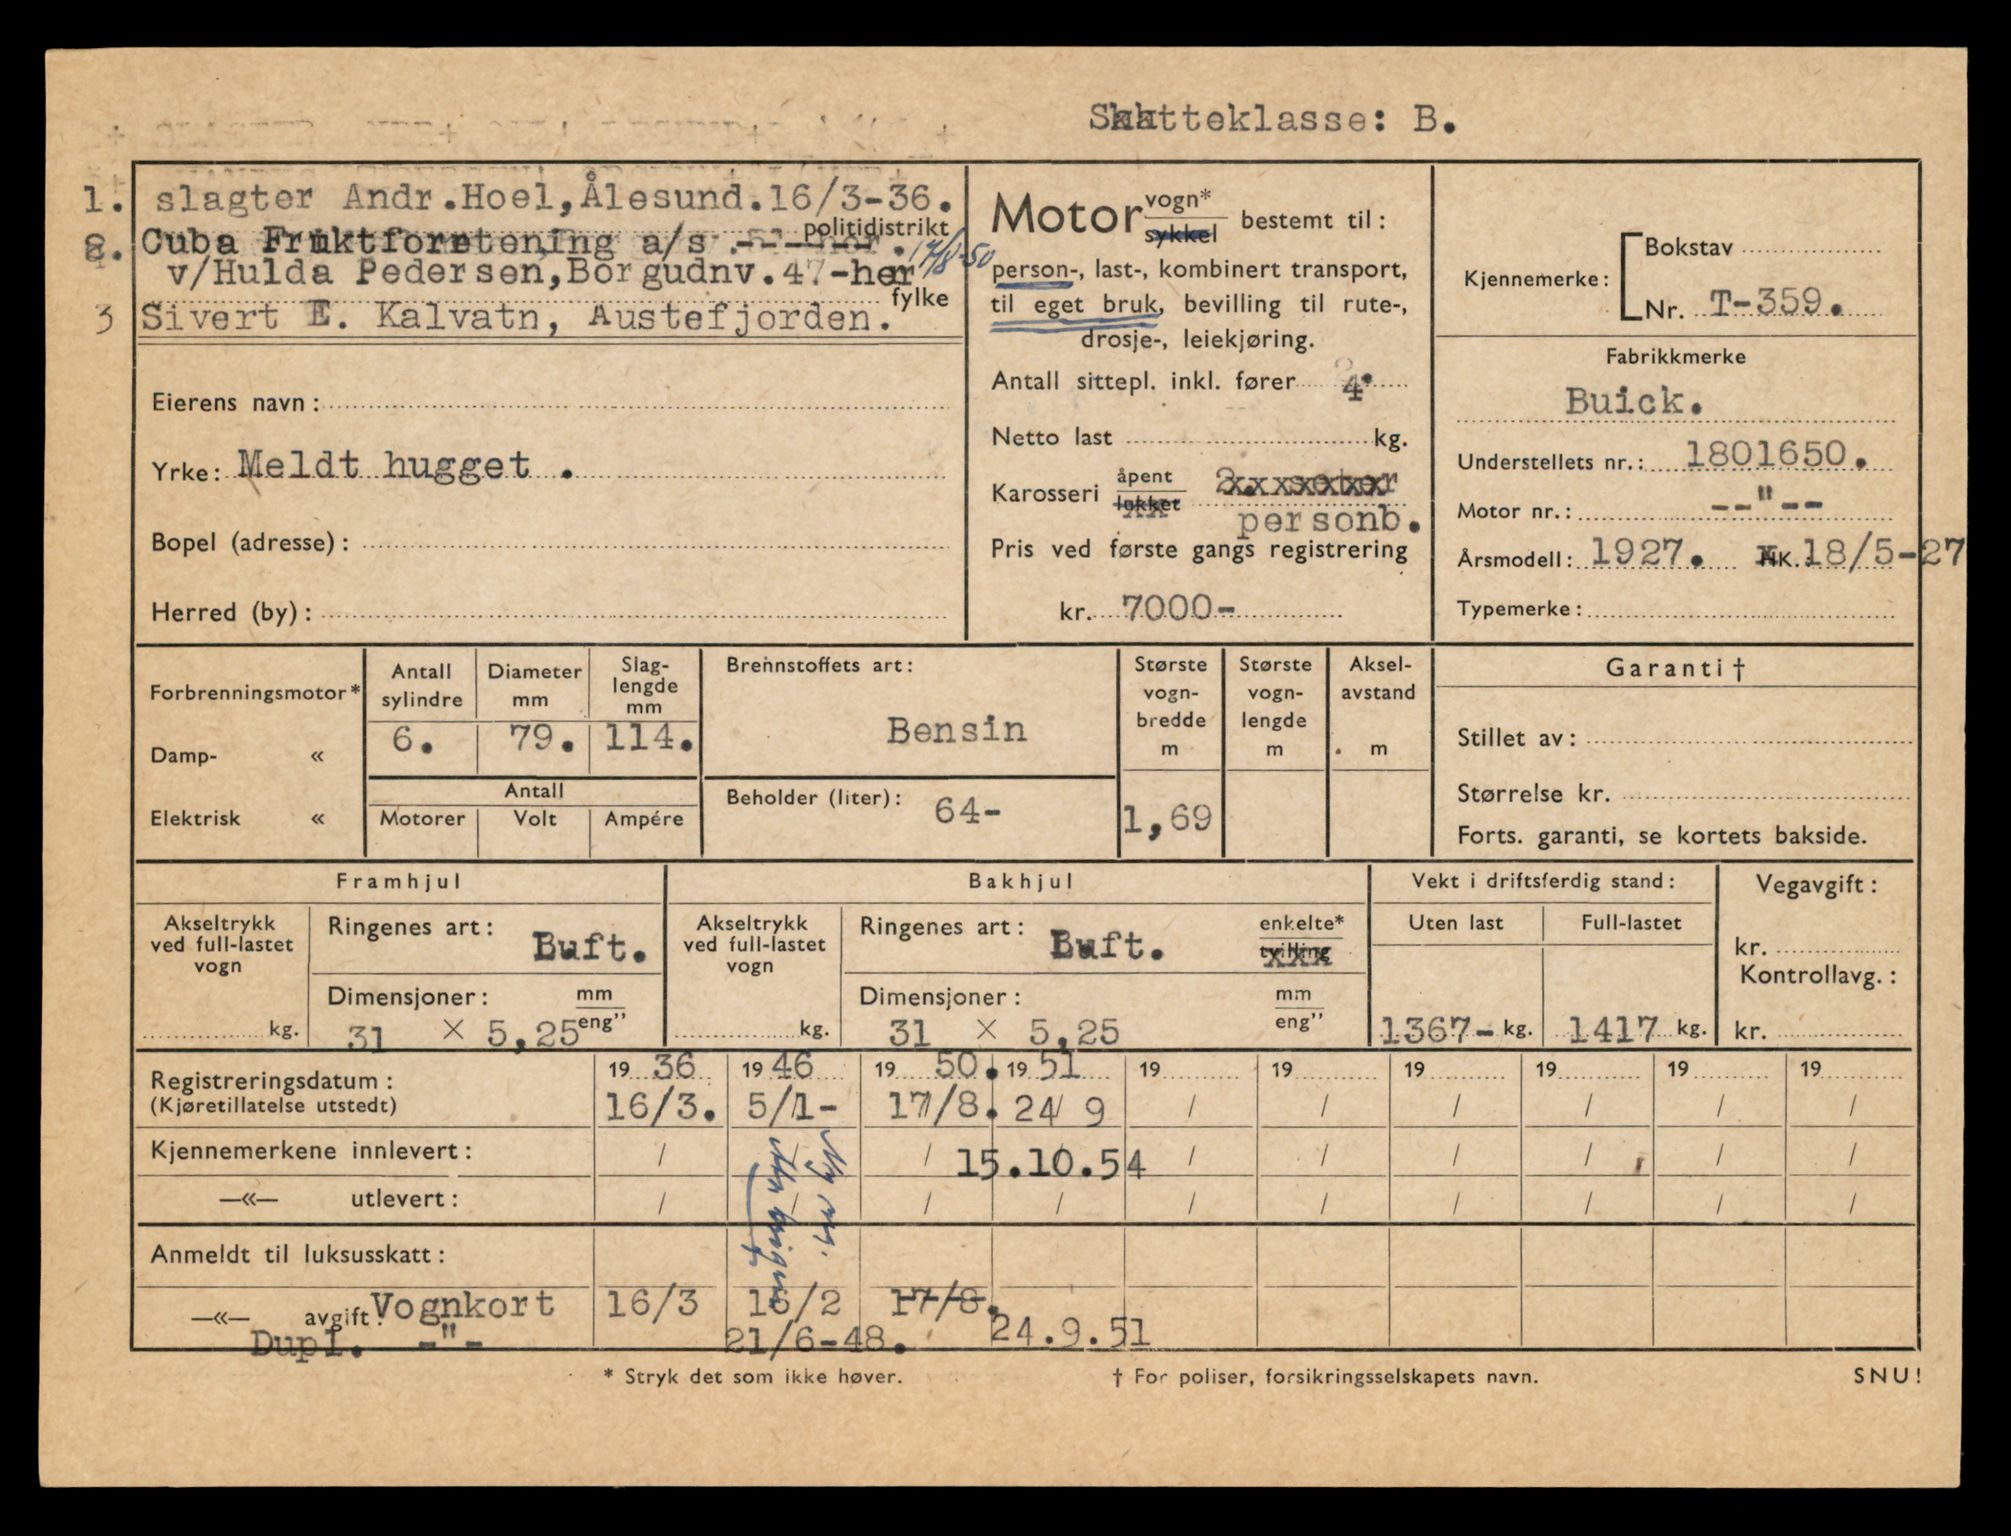 Skatteklasse: B.
1. slagter Andr.Hoel,Ålesund.16/3-36.
politidistrikt
2. Cuba Fruktforretening a/s 17/8-50
v/Hulda Pedersen,Borgudnv.47-her
fylke
3 Sivert E. Kalvatn, Austefjorden.
Eierens navn:
Yrke: Meldt hugget .
Bopel (adresse):
Herred (by):
Motor vogn* sykkel bestemt til:
person-, last-, kombinert transport,
til eget bruk, bevilling til rute-,
drosje-, leiekjøring.
Antall sittepl. inkl. fører 4.
Netto last kg.
Karosseri åpent lukket 2 seter
personb.
Pris ved første gangs registrering
kr. 7000-
Kjennemerke: Bokstav
Nr. T-359.
Fabrikkmerke
Buick.
Understellets nr.: 1801650.
Motor nr.: --"--
Årsmodell: 1927. HK. 18/5-27
Typemerke:
Forbrenningsmotor*
Damp- «
Elektrisk «
Antall sylindre
6.
Diameter mm
79.
Slag-lengde mm
114.
Antall
Motorer Volt Ampére
Brennstoffets art:
Bensin
Beholder (liter): 64-
Største vogn-bredde m
1,69
Største vogn-lengde m
Aksel-avstand m
Garanti †
Stillet av:
Størrelse kr.
Forts. garanti, se kortets bakside.
Framhjul
Akseltrykk ved full-lastet vogn
kg.
Ringenes art: Luft.
Dimensjoner: mm eng"
31 × 5,25
Bakhjul
Akseltrykk ved full-lastet vogn
kg.
Ringenes art: Luft. enkelte* tvilling
Dimensjoner: mm eng"
31 × 5,25
Vekt i driftsferdig stand:
Uten last Full-lastet
1367- kg. 1417 kg.
Vegavgift:
kr.
Kontrollavg.:
kr.
19 36 19 46 19 50. 19 51 19 19 19 19 19 19
Registreringsdatum:
(Kjøretillatelse utstedt) 16/3. 5/1- 17/8. 24/9 / / / / / /
Kjennemerkene innlevert: / / / 15.10.54 / / / / / /
—«— utlevert: / / / / / / / / / /
Ny m.
Anmeldt til luksusskatt:
—«— avgift: Vognkort 16/3 16/2 17/8.
Dupl. -"- 21/6-48. 24.9.51
* Stryk det som ikke høver. † For poliser, forsikringsselskapets navn. SNU!